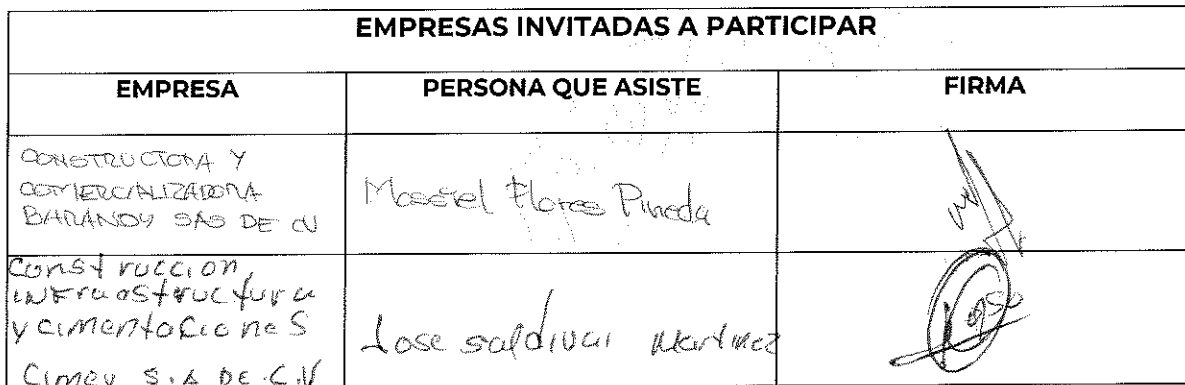 EMPRESAS INVITADAS A PARTICIPAR
EMPRESA PERSONA QUE ASISTE FIRMA
CONSTRUCTORA Y
COMERCIALIZADORA
BARANDY SAS DE CV
Flores Pineda
Construccion,
infraestructura
y cimentaciones
Cimev S.A DE C.V
Jose saldivar Martinez
Jose